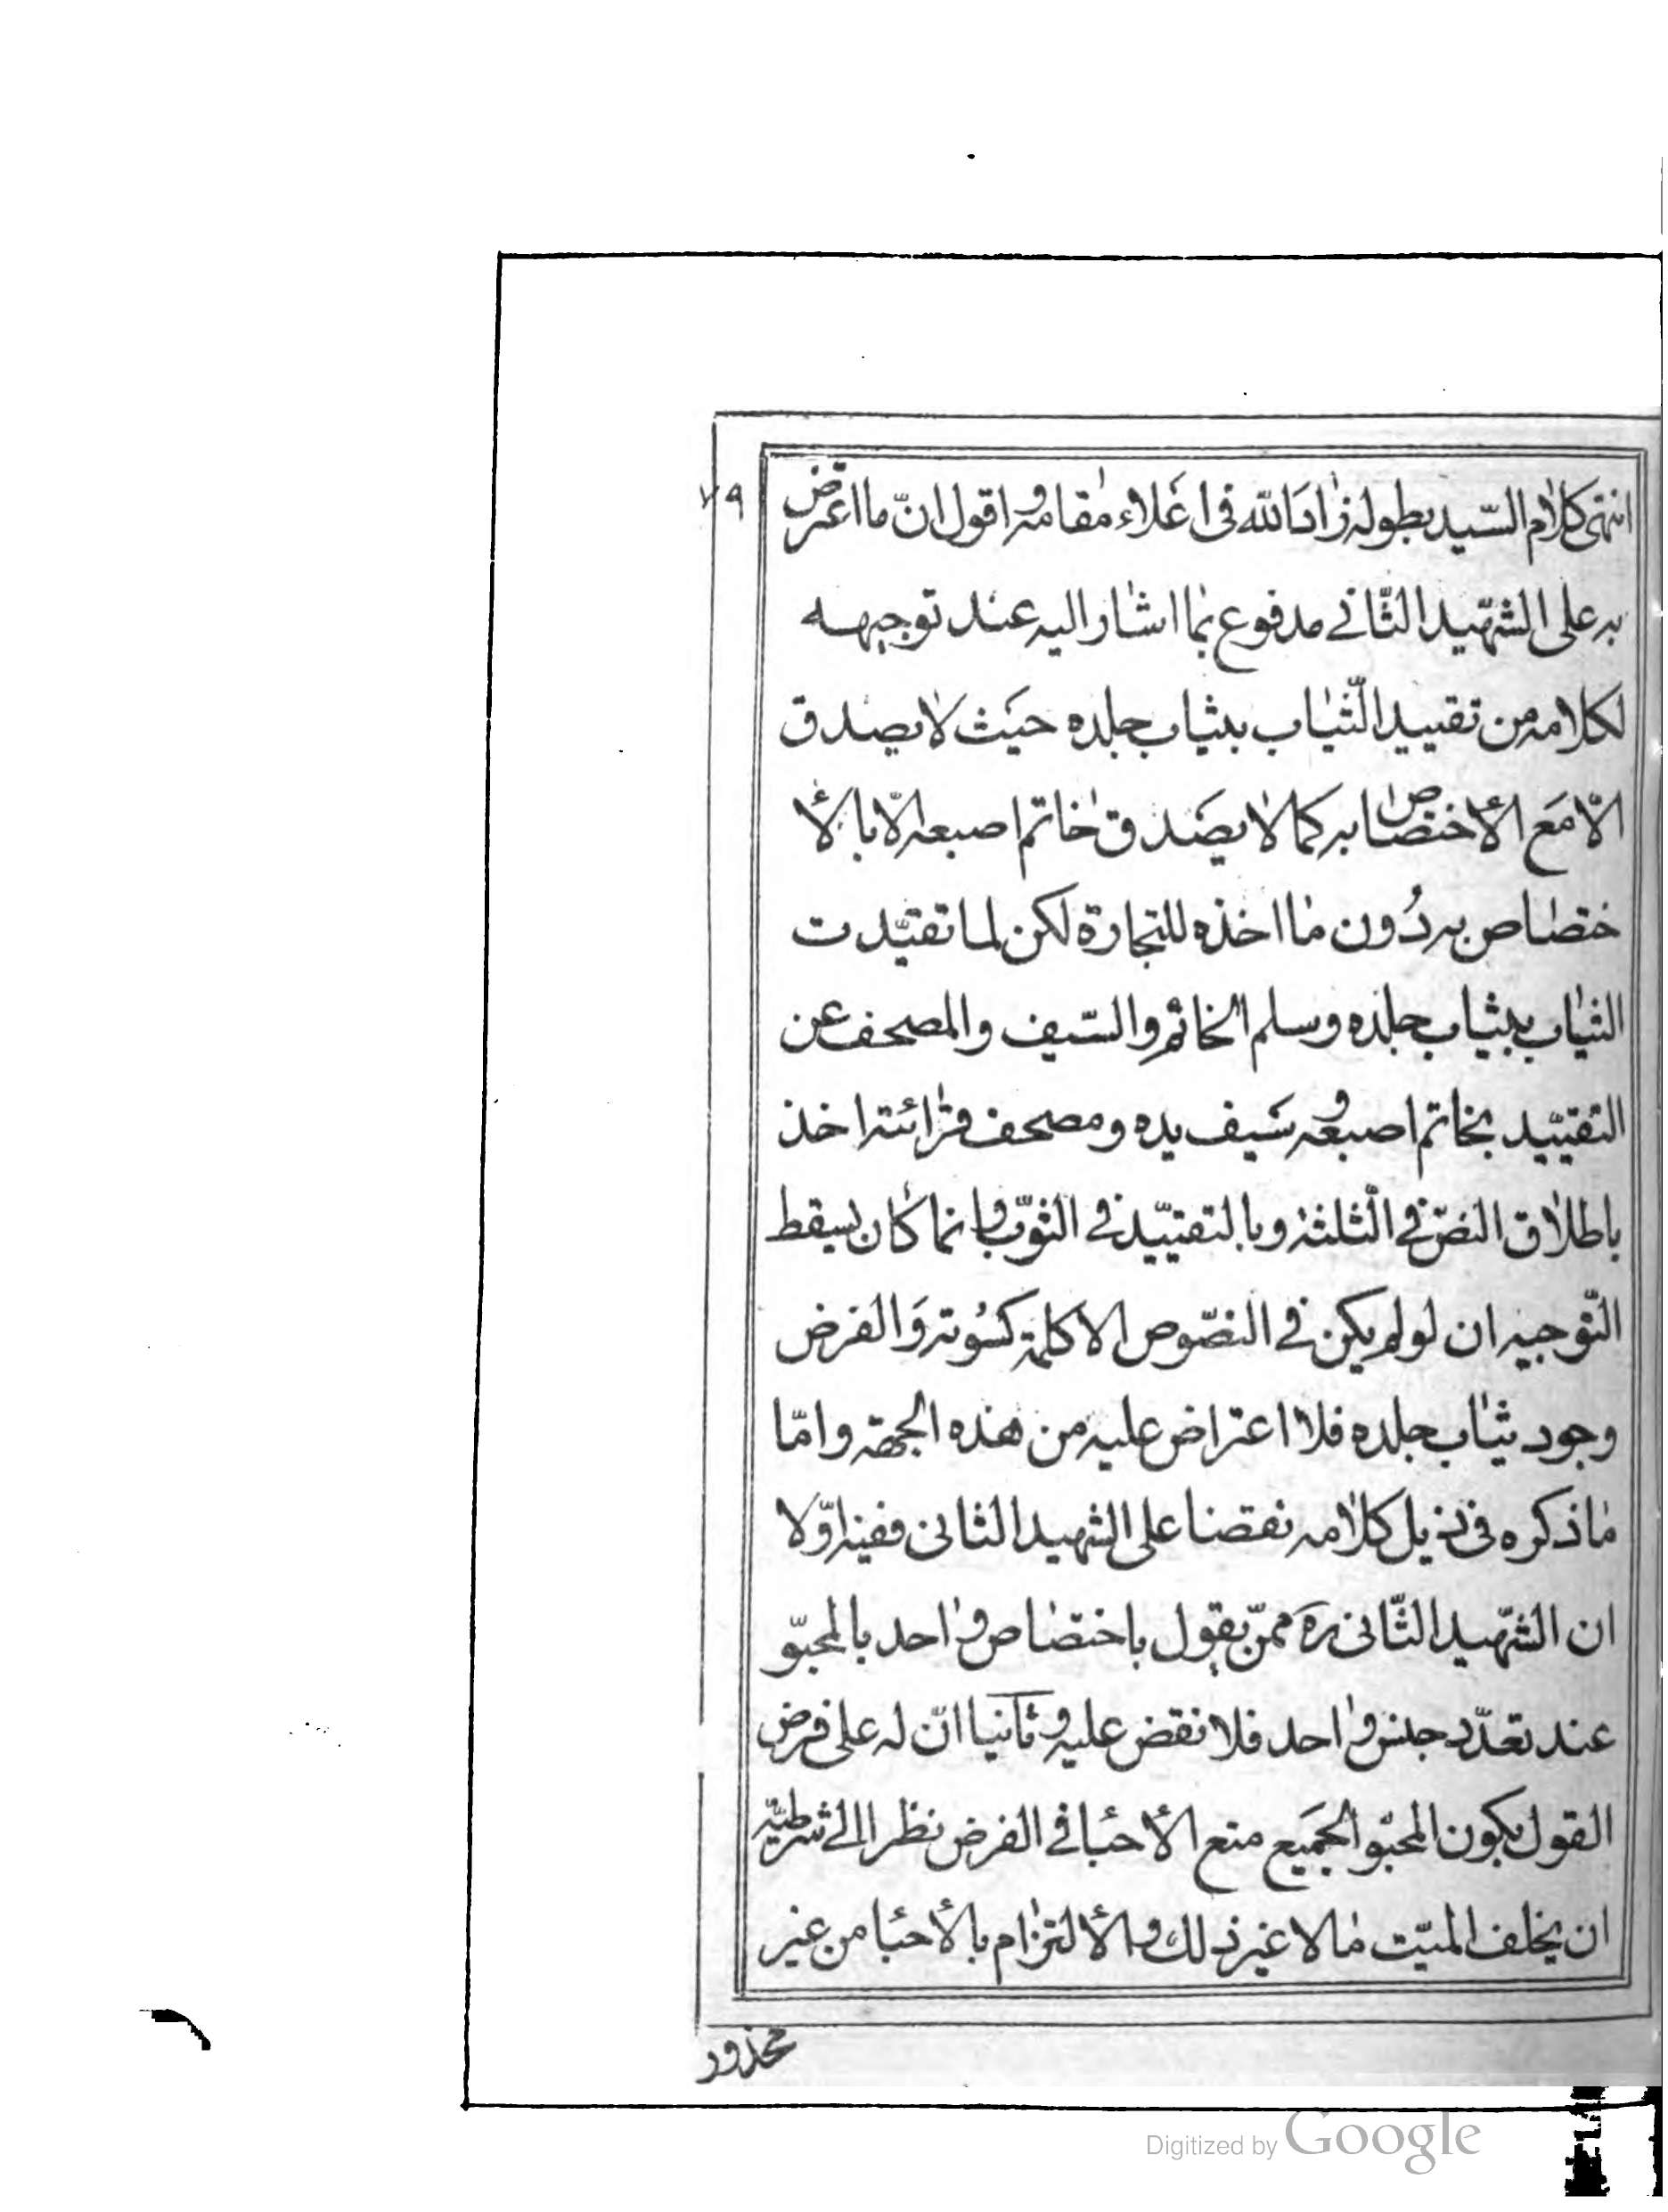 ٧٩
انتهى كلام السّيد بطوله زاد الله فى اعلاء مقامه و اقول انّ ما اعترض
به على الشهيد الثّانے مدفوع بما اشار اليه عند توجيهه
لكلامه من تقييد الثّياب بثياب جلده حيث لا يصدق
الّا مع الأختصاص به كما لا يصدق خاتم اصبعه الّا بالأ
ختصاص به دُون ما اخذه للتجارة لكن لما تقيّدت
الثياب بثياب جلده وسلم الخاتم والسّيف والمصحف عن
التقييد بخاتم اصبعه و سَيف يده ومصحف قرائته اخذ
باطلاق النصّ فے الثلثة وبالتقييد فے الثوب و انما كان يسقط
التّوجيه ان لو لم يكن فے النصّوص الا كلمة كسُوته وَالفرض
وجود ثياب جلده فلا اعتراض عليه من هذه الجهة وامّا
ما ذكره فى ذيل كلامه نقضا على الشهيد الثانى ففيه اوّلا
ان الشّهيد الثّانى ره ممّن يقول باختصاص واحد بالمحبّو
عند تعدّد جنس واحد فلا نقض عليه و ثانيا انّ له على فرض
القول بكون المحبّو الجَميع منع الأحبا فے الفرض نظرا الے شرطيّة
ان يخلف الميّت مالا غير ذلك و الألتزام بالأحبا من غير
محذور
Digitized by Google